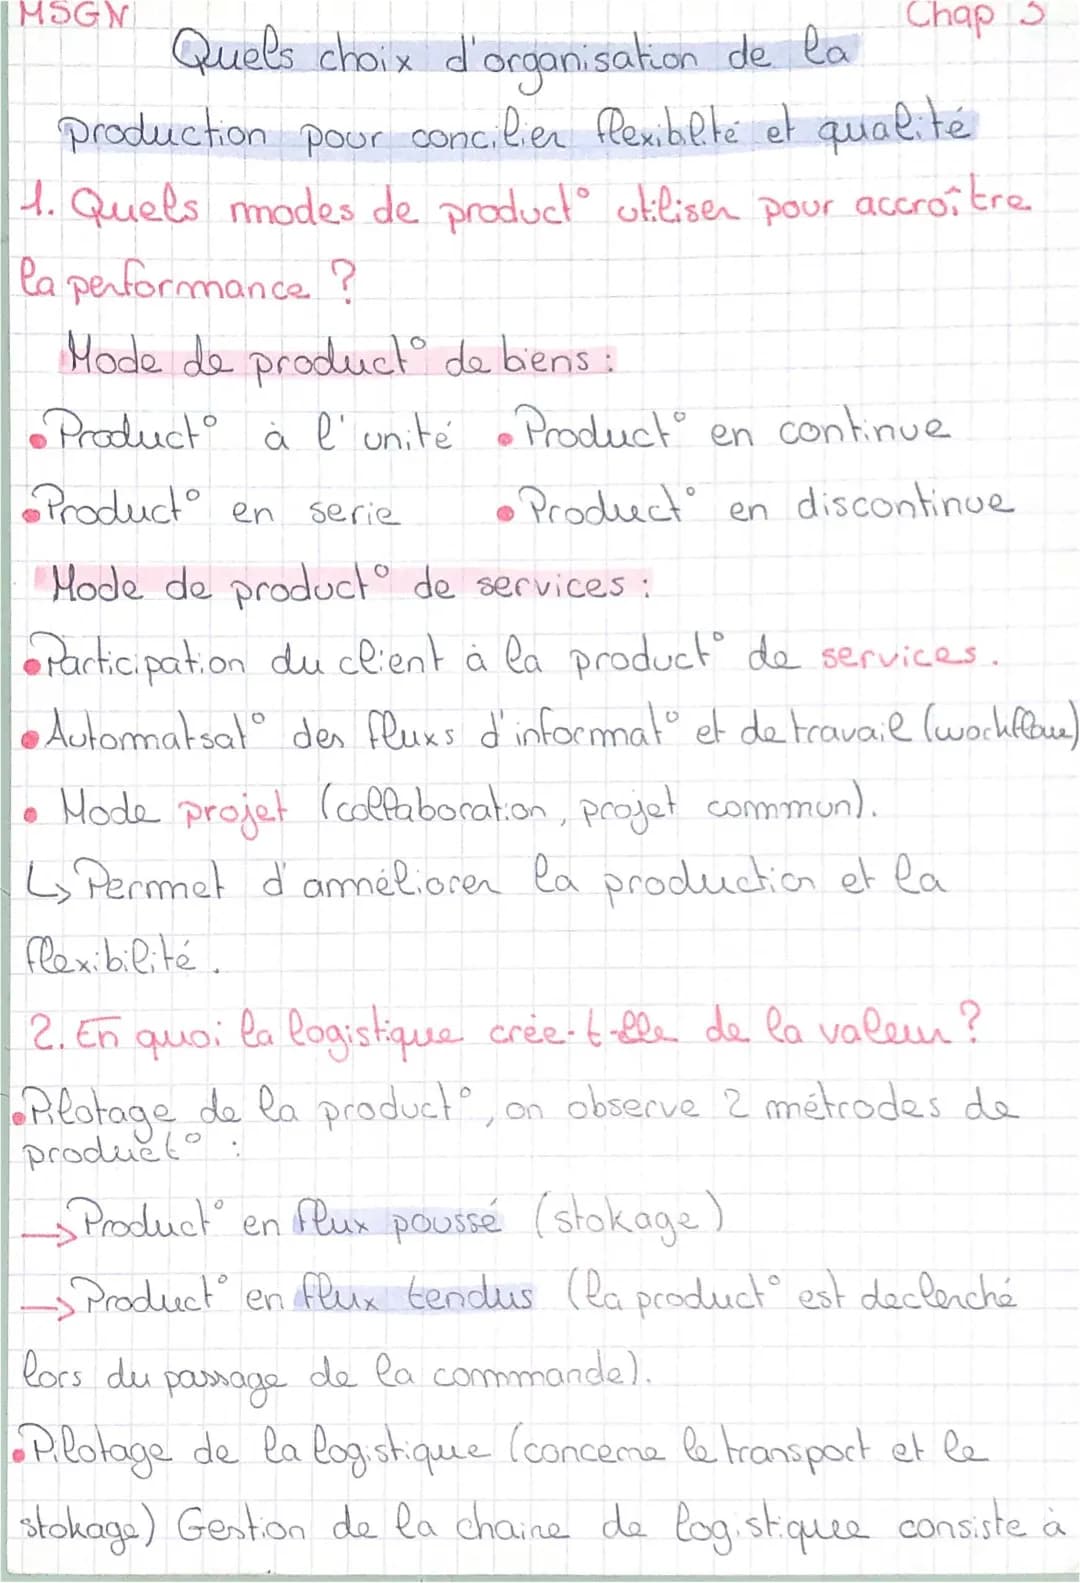 MSGN Chap 5
Quels choix d'organisation de la
production pour concilier flexibilté et qualité
1. Quels modes de product° utiliser pour accroître
la performance ?
Mode de product° de biens :
• Product° à l'unité • Product° en continue
• Product° en serie • Product° en discontinue
Mode de product° de services :
• Participation du client à la product° de services.
• Automatsat° des fluxs d'informat° et de travail (workflow)
• Mode projet (collaboration, projet commun).
↳ Permet d'améliorer la production et la
flexibilité.
2. En quoi la logistique crée-t-elle de la valeur ?
• Pilotage de la product°, on observe 2 métrodes de
product° :
→ Product° en flux poussé (stokage)
→ Product° en flux tendus (la product° est declenché
lors du passage de la commande).
• Pilotage de la logistique (concerne le transport et le
stokage) Gestion de la chaine de logistique consiste à